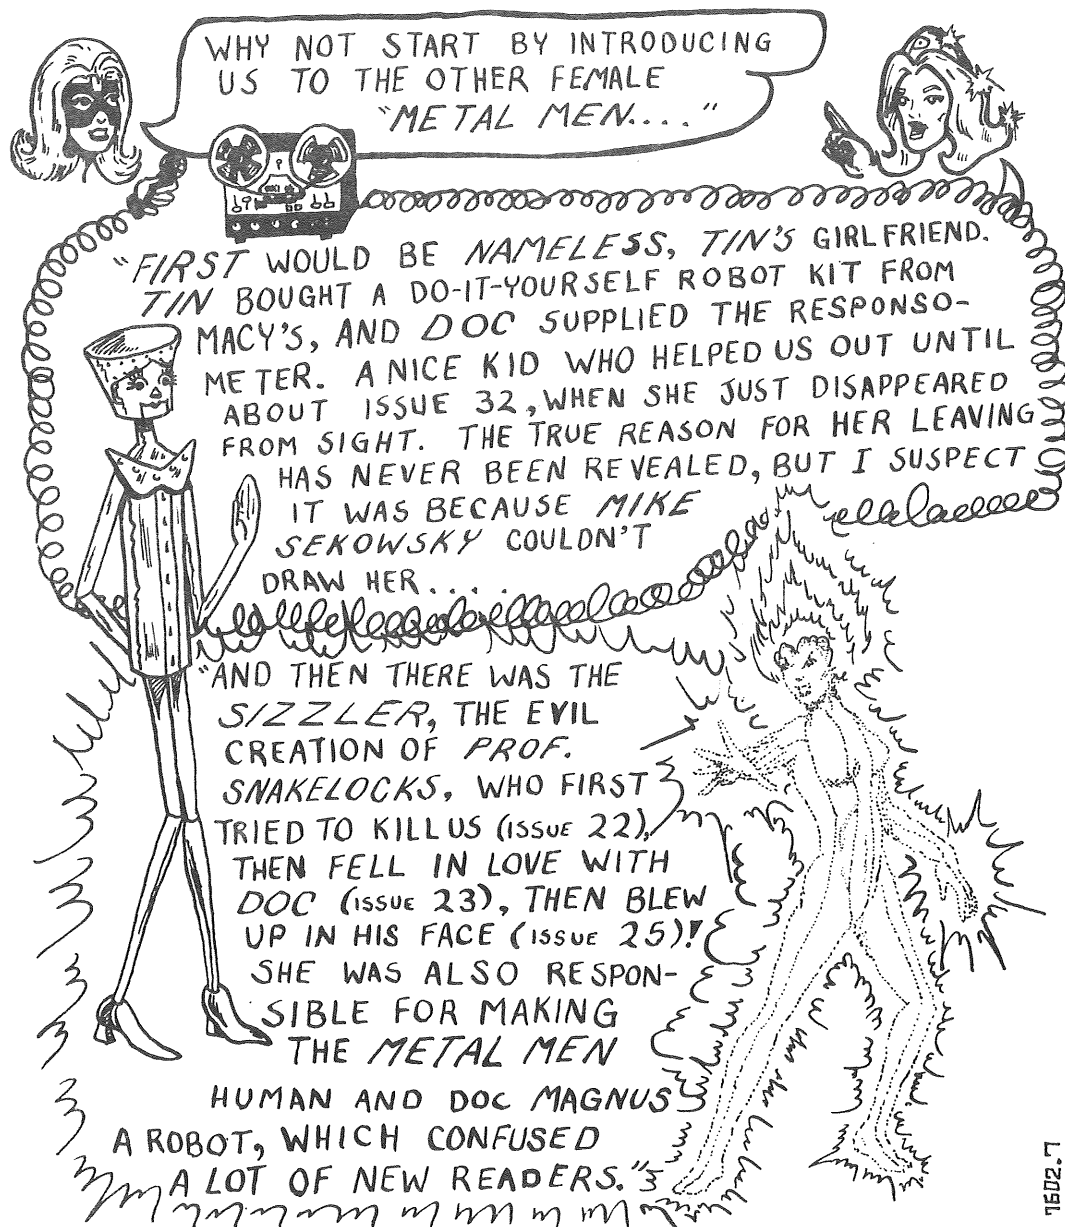 WHY NOT START BY INTRODUCING
US TO THE OTHER FEMALE
"METAL MEN...."
"FIRST WOULD BE NAMELESS, TIN'S GIRLFRIEND.
TIN BOUGHT A DO-IT-YOURSELF ROBOT KIT FROM
MACY'S, AND DOC SUPPLIED THE RESPONSO-
METER. A NICE KID WHO HELPED US OUT UNTIL
ABOUT ISSUE 32, WHEN SHE JUST DISAPPEARED
FROM SIGHT. THE TRUE REASON FOR HER LEAVING
HAS NEVER BEEN REVEALED, BUT I SUSPECT
IT WAS BECAUSE MIKE
SEKOWSKY COULDN'T
DRAW HER....
"AND THEN THERE WAS THE
SIZZLER, THE EVIL
CREATION OF PROF.
SNAKELOCKS, WHO FIRST
TRIED TO KILL US (ISSUE 22),
THEN FELL IN LOVE WITH
DOC (ISSUE 23), THEN BLEW
UP IN HIS FACE (ISSUE 25)!
SHE WAS ALSO RESPON-
SIBLE FOR MAKING
THE METAL MEN
HUMAN AND DOC MAGNUS
A ROBOT, WHICH CONFUSED
A LOT OF NEW READERS."
7602.7